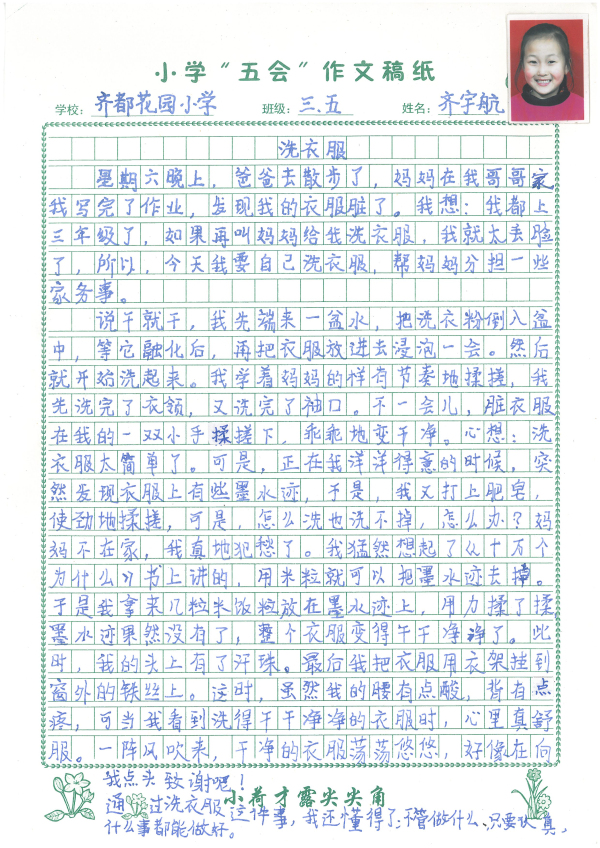 小学“五会”作文稿纸
学校：齐都花园小学 班级：三.五 姓名：齐宇航
洗衣服
星期六晚上，爸爸去散步了，妈妈在我哥哥家
我写完了作业，发现我的衣服脏了。我想：我都上
三年级了，如果再叫妈妈给我洗衣服，我就太丢脸
了，所以，今天我要自己洗衣服，帮妈妈分担一些
家务事。
说干就干，我先端来一盆水，把洗衣粉倒入盆
中，等它融化后，再把衣服放进去浸泡一会。然后
就开始洗起来。我学着妈妈的样有节奏地揉搓，我
先洗完了衣领，又洗完了袖口。不一会儿，脏衣服
在我的一双小手揉搓下，乖乖地变干净。心想：洗
衣服太简单了。可是，正在我洋洋得意的时候，突
然发现衣服上有些墨水迹，于是，我又打上肥皂，
使劲地揉搓，可是，怎么洗也洗不掉，怎么办？妈
妈不在家，我真地犯愁了。我猛然想起了《十万个
为什么》书上讲的，用米粒就可以把墨水迹去掉。
于是我拿来几粒米饭粒放在墨水迹上，用力揉了揉
墨水迹果然没有了，整个衣服变得干干净净了。此
时，我的头上有了汗珠。最后我把衣服用衣架挂到
窗外的铁丝上。这时，虽然我的腰有点酸，背有点
疼，可当我看到洗得干干净净的衣服时，心里真舒
服。一阵风吹来，干净的衣服荡荡悠悠，好像在向
我点头致谢吧！
通过洗衣服这件事，我还懂得了：不管做什么，只要认真，
什么事都能做好。
小荷才露尖尖角